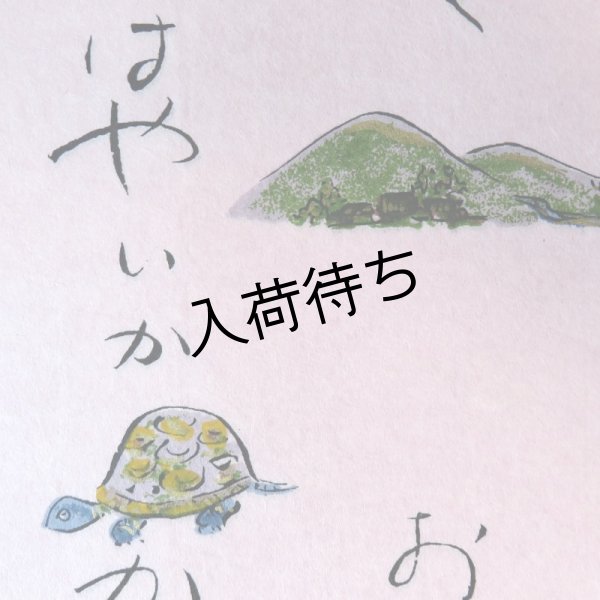 お
はやいか
か
入荷待ち